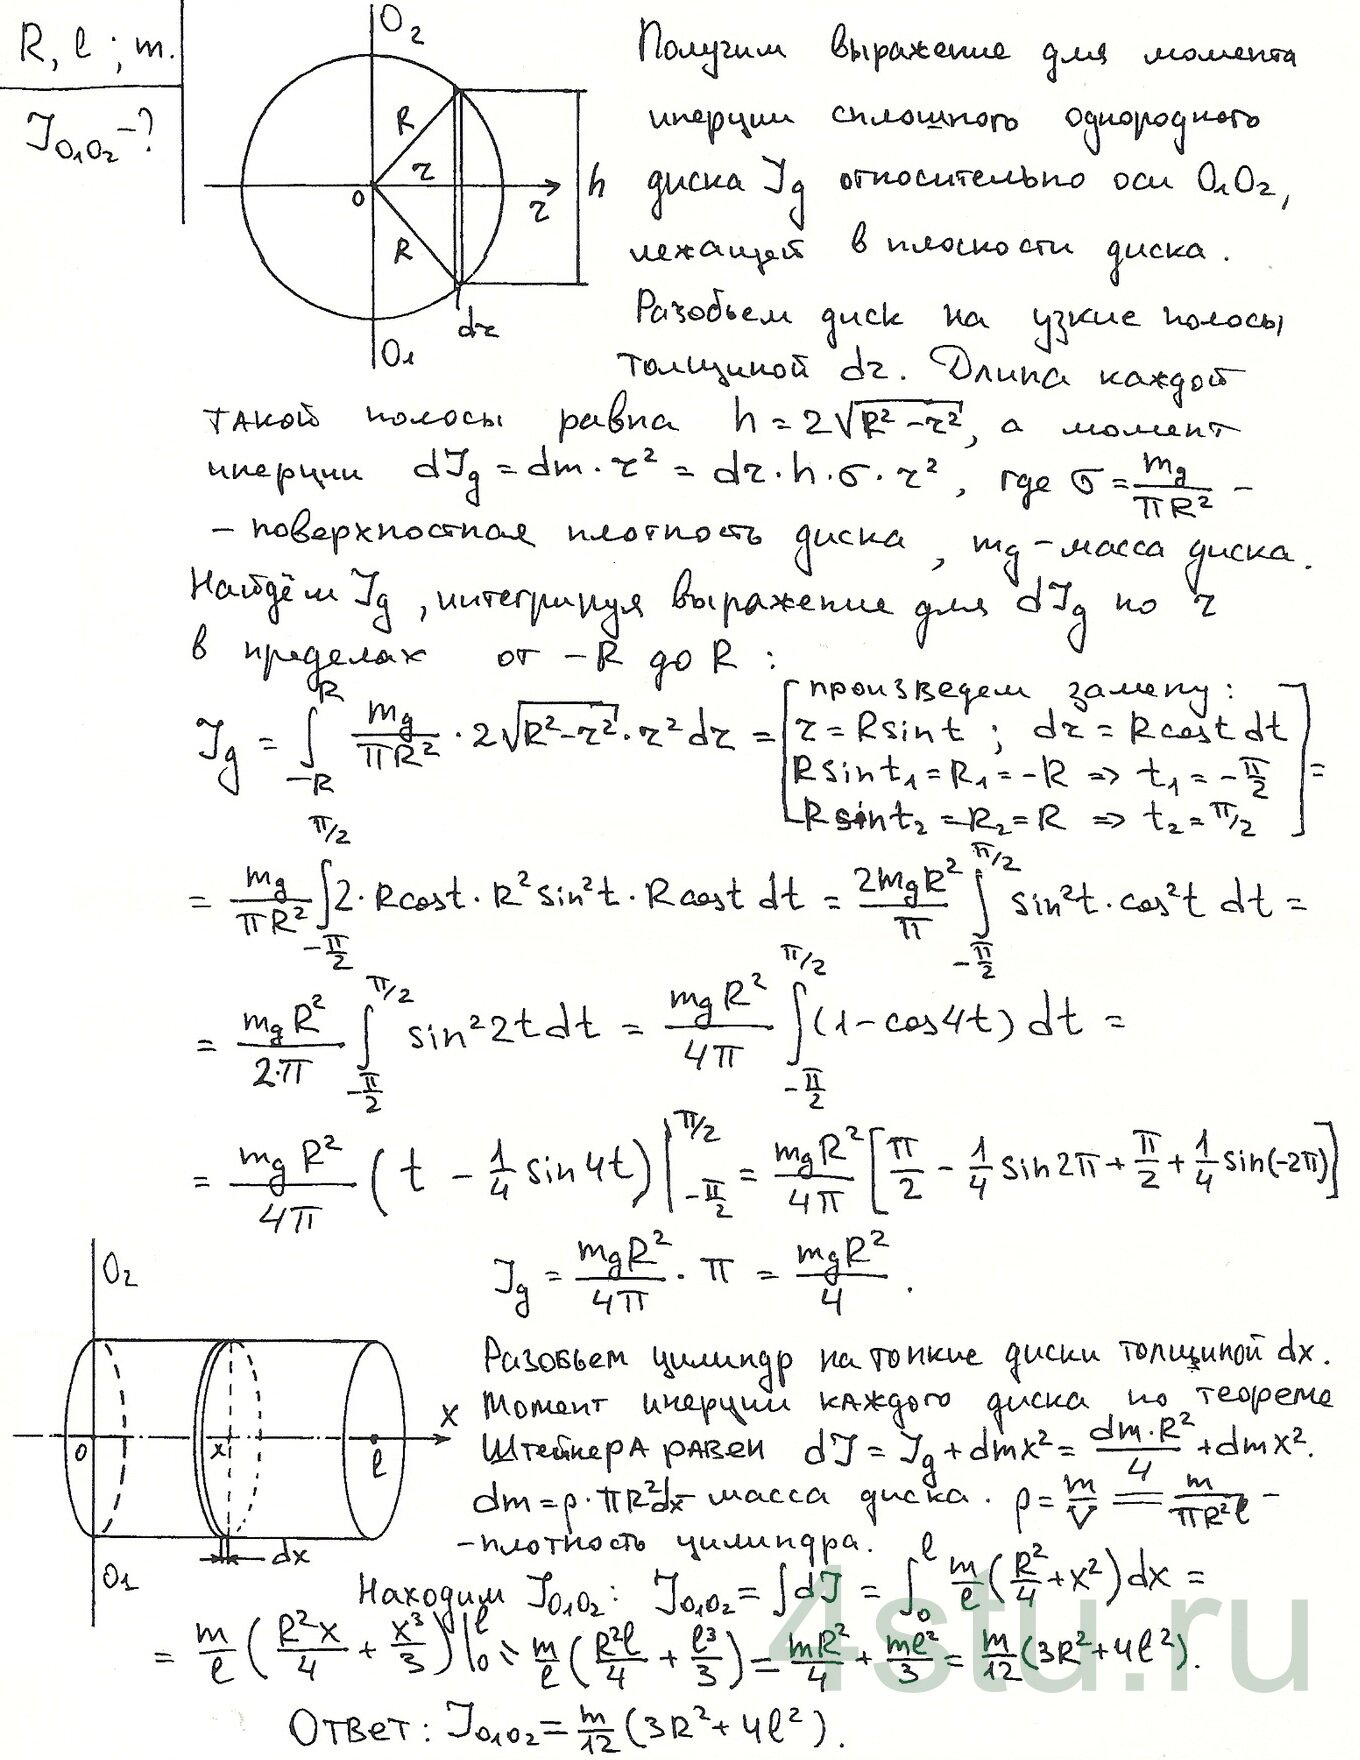 R, l ; m.
J_{O₁O₂} – ?
O₂
R
r
O
r
h
R
dr
O₁
Получим выражение для момента
инерции сплошного однородного
диска J_g относительно оси O₁O₂,
лежащей в плоскости диска.
Разобьем диск на узкие полосы
толщиной dr. Длина каждой
такой полосы равна h = 2√(R² – r²), а момент
инерции dJ_g = dm · r² = dr · h · σ · r², где σ = m_g/(πR²) –
– поверхностная плотность диска, m_g – масса диска.
Найдём J_g, интегрируя выражение для dJ_g по r
в пределах от –R до R :
J_g = ∫_{–R}^{R} m_g/(πR²) · 2√(R² – r²) · r² dr = [произведем замену:
r = R sin t ; dr = R cos t dt
R sin t₁ = R₁ = –R ⇒ t₁ = –π/2
R sin t₂ = R₂ = R ⇒ t₂ = π/2] =
= m_g/(πR²) ∫_{–π/2}^{π/2} 2 · R cos t · R² sin² t · R cos t dt = 2m_gR²/π ∫_{–π/2}^{π/2} sin² t · cos² t dt =
= m_gR²/(2·π) ∫_{–π/2}^{π/2} sin² 2t dt = m_gR²/(4π) ∫_{–π/2}^{π/2} (1 – cos 4t) dt =
= m_gR²/(4π) (t – 1/4 sin 4t) |_{–π/2}^{π/2} = m_gR²/(4π) [π/2 – 1/4 sin 2π + π/2 + 1/4 sin(–2π)]
J_g = m_gR²/(4π) · π = m_gR²/4 .
O₂
O
x
l
X
dx
O₁
Разобьем цилиндр на тонкие диски толщиной dx.
Момент инерции каждого диска по теореме
Штейнера равен dJ = J_g + dmx² = dm·R²/4 + dmx².
dm = ρ · πR²dx – масса диска. ρ = m/V = m/(πR²l) –
– плотность цилиндра.
Находим J_{O₁O₂} : J_{O₁O₂} = ∫dJ = ∫_0^l m/l (R²/4 + x²) dx =
= m/l (R²x/4 + x³/3) |_0^l = m/l (R²l/4 + l³/3) = mR²/4 + ml²/3 = m/12 (3R² + 4l²).
Ответ: J_{O₁O₂} = m/12 (3R² + 4l²).
4stu.ru